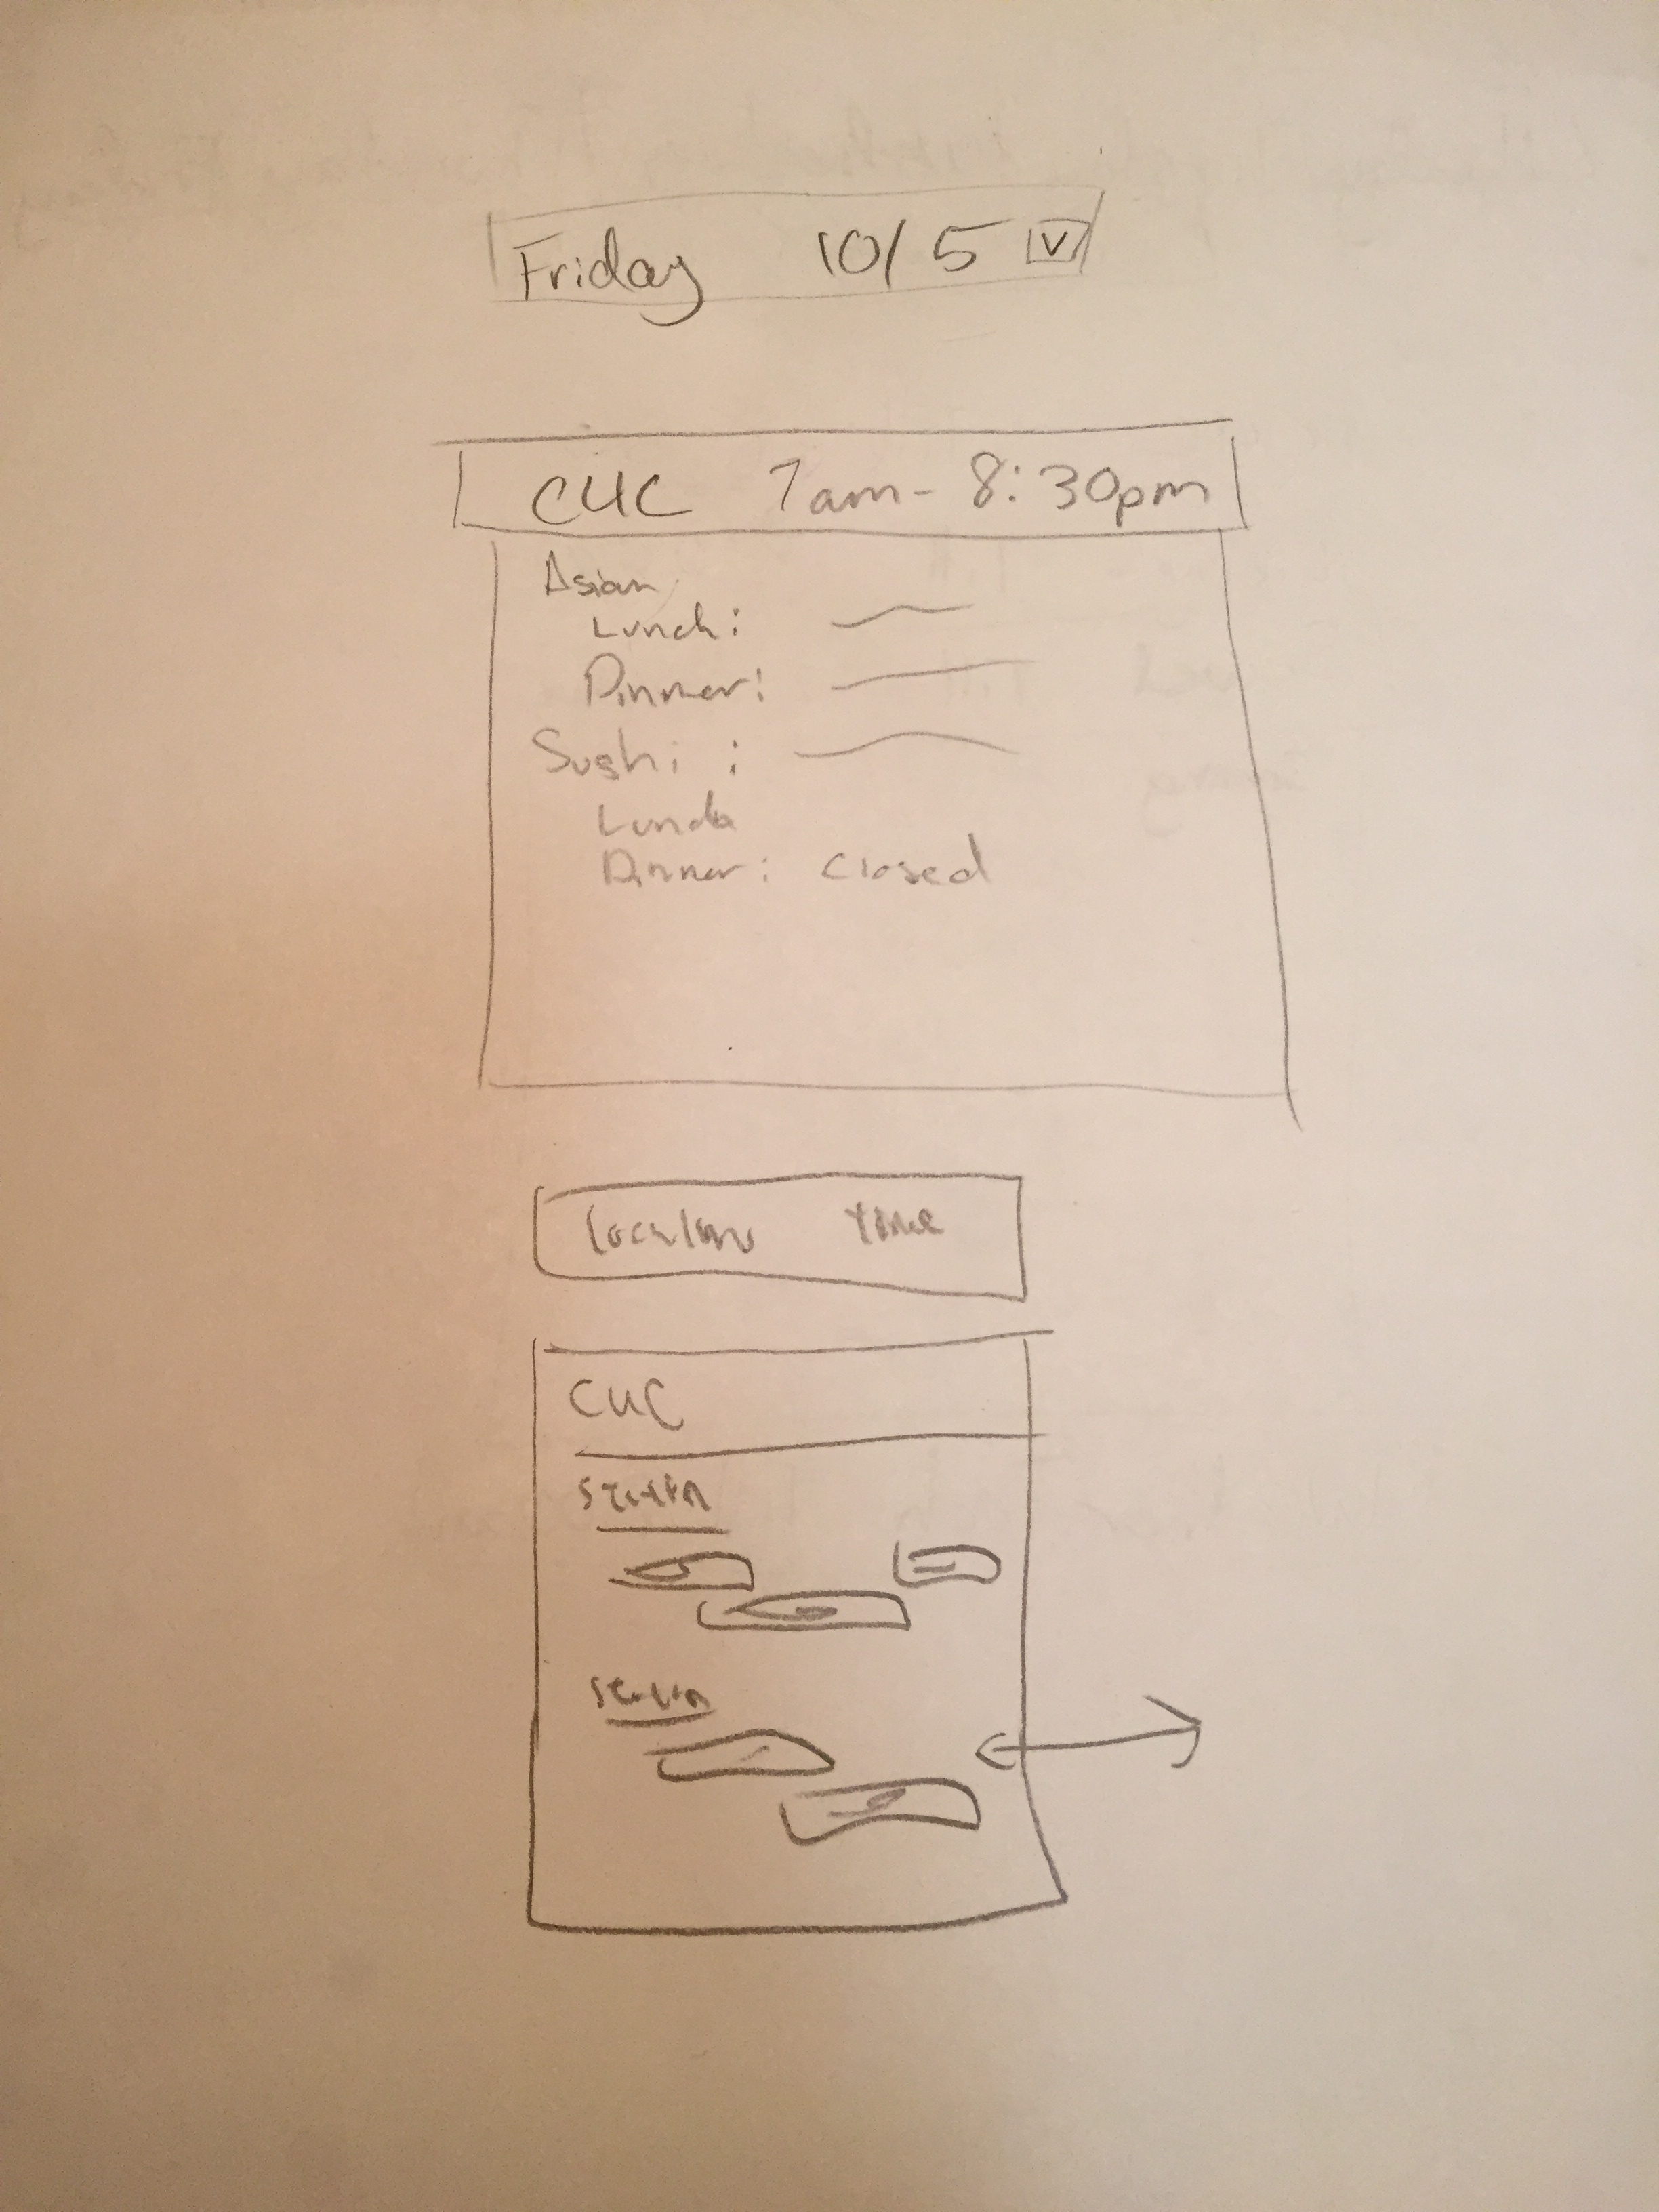 Friday 10/5 V
CUC 7am - 8:30pm
Asian
Lunch:
Dinner:
Sushi :
Lunch
Dinner: Closed
location time
CUC